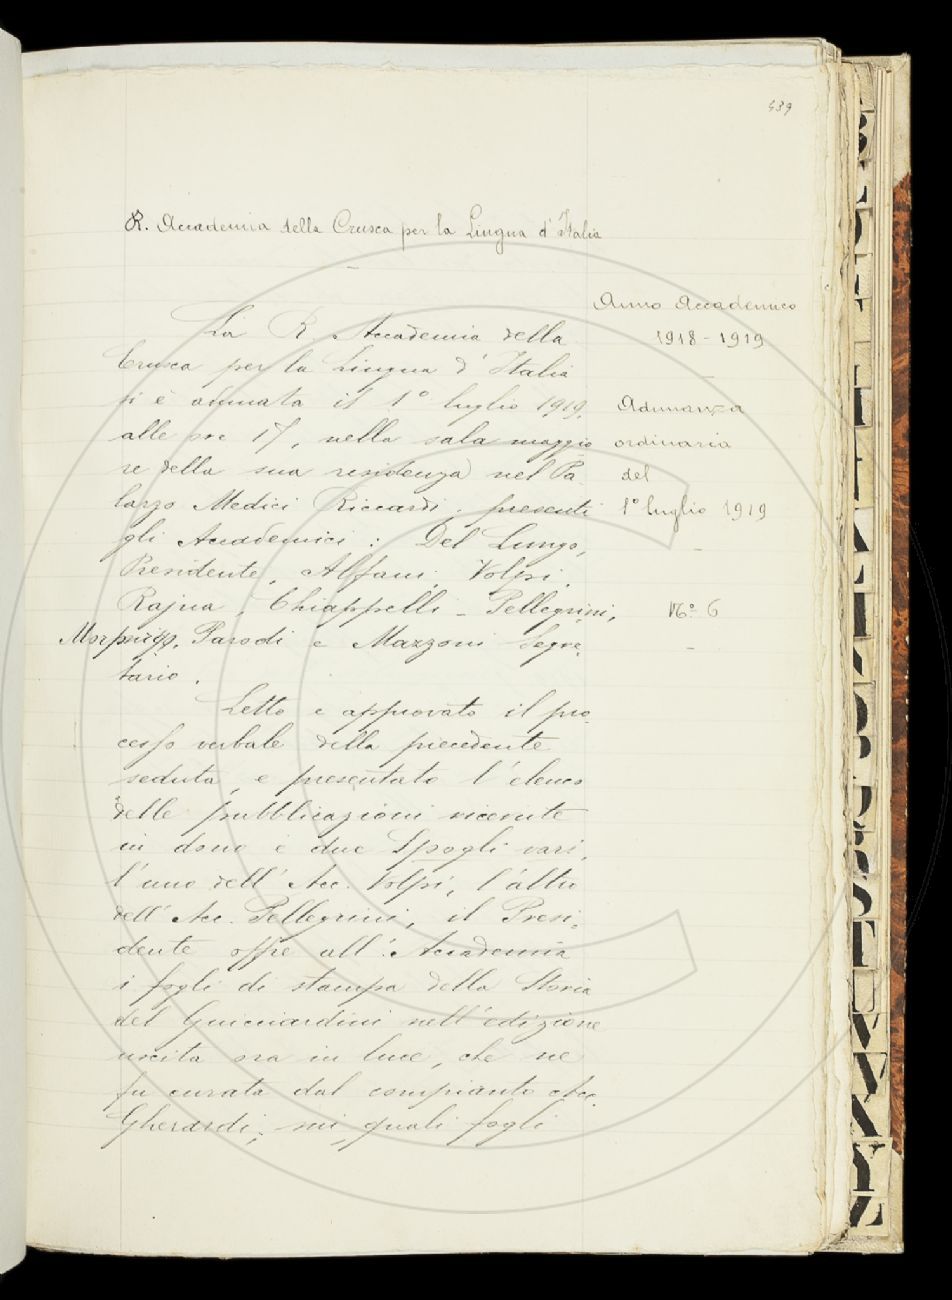 439
R. Accademia della Crusca per la Lingua d'Italia
Anno Accademico
1918-1919
Adunanza
ordinaria
del
1° luglio 1919
N.° 6
La R. Accademia della
Crusca per la Lingua d'Italia
si è adunata il 1° luglio 1919,
alle ore 17, nella sala maggio
re della sua residenza nel Pa-
lazzo Medici Riccardi; presenti
gli Accademici: Del Lungo,
Presidente, Alfani, Volpi,
Rajna, Chiappelli - Pellegrini,
Morpurgo, Parodi e Mazzoni Segre-
tario.
Letto e approvato il pro-
cesso verbale della precedente
seduta, e presentato l'elenco
delle pubblicazioni ricevute
in dono e due Spogli vari,
l'uno dell'Acc. Volpi, l'altro
dell'Acc. Pellegrini, il Presi-
dente offre all'Accademia
i fogli di stampa della Storia
del Guicciardini nell'edizione
uscita ora in luce, che ne
fu curata dal compianto Acc.
Gherardi; sui quali fogli
B
L
T
V
X
Y
Z